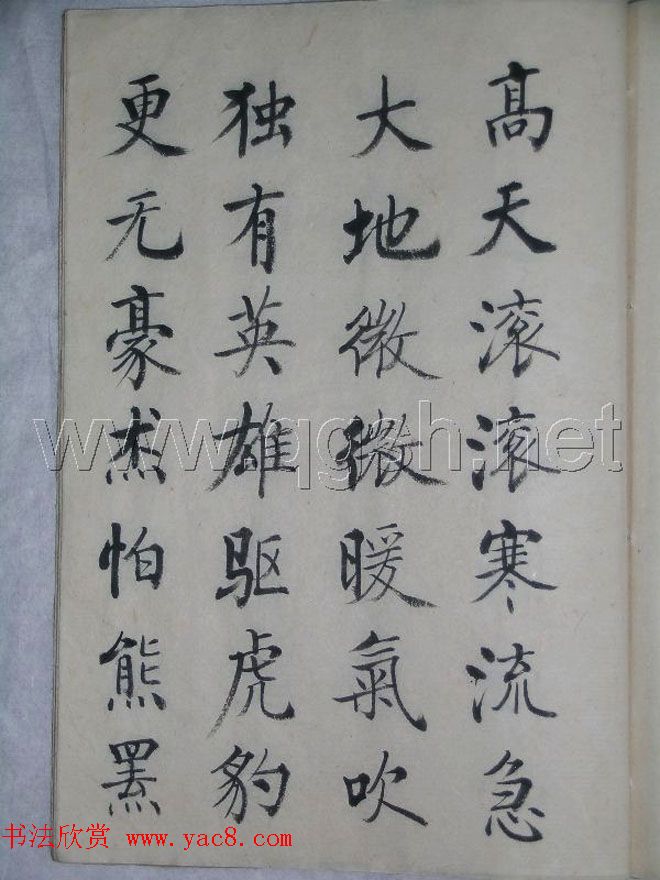 高天滚滚寒流急
大地微微暖氣吹
独有英雄驱虎豹
更无豪杰怕熊罴
书法欣赏 www.yac8.com